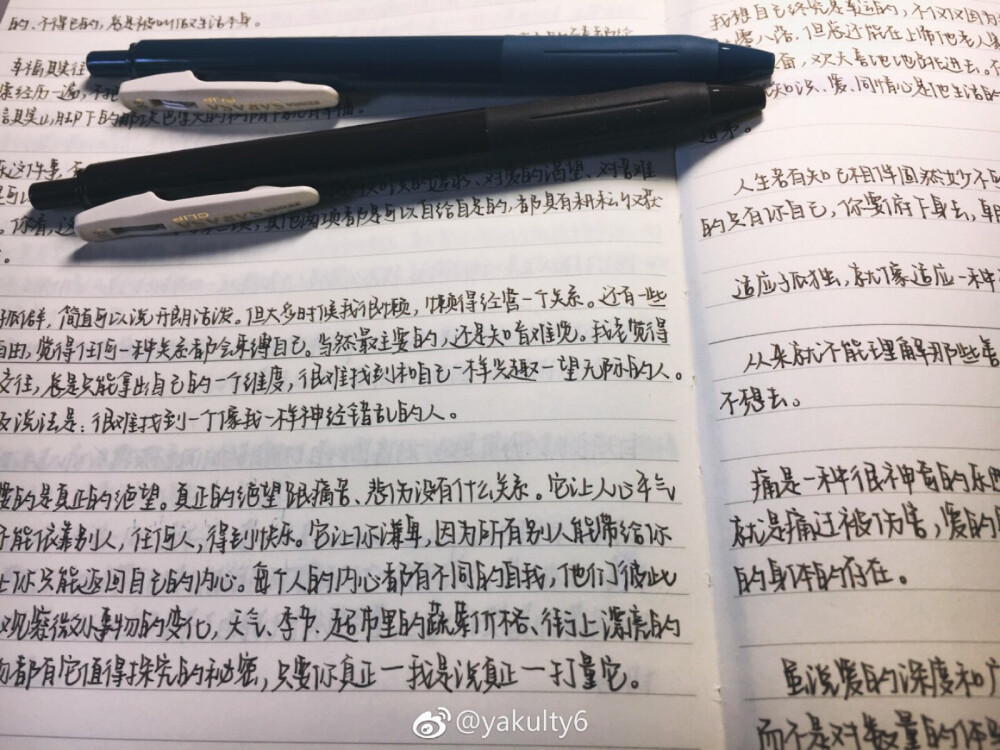 的、不得已的，总是被叫做生活本身。
幸福其实往
在这件事
你看，这 其他两项都是可以自给自足的，都具有积极
孤群，简直可以说开朗活泼。但大多时候我很懒，懒得经营一个关系。还有一些
自由，觉得任何一种关系都会束缚自己。当然最主要的，还是知音难觅。我老觉得
交往，总是只能拿出自己的一个维度，很难找到和自己一样兴趣一望无际的人。
及说法是：很难找到一个像我一样神经错乱的人。
要的是真正的绝望。真正的绝望跟痛苦、悲伤没有什么关系。它让人心平气
不能依靠别人，任何人，得到快乐。它让你谦卑，因为所有别人能带给你
让你只能返回自己的内心。每个人的内心都有不同的自我，他们彼此
以观察微小事物的变化，天气、季节、超市里的蔬菜价格、街上漂亮的
物都有它值得探究的秘密，只要你真正—我是说真正—打量它。
我想自己终究是幸运的，不仅仅因为
看，欢天喜地地跳进去。
知识、爱、同情心是他生活的
人生若有知己相伴固然妙不
的只有你自己，你要俯下身去，朝
适应孤独，就像适应一种
从来就不能理解那些喜
不想去。
痛是一种很神奇的东西
就是痛过被伤害，爱的
的身体的存在。
虽说爱的深度和广
而不是对数量的体
ZEBRA SARASA CLIP
ZEBRA SARASA CLIP
@yakulty6